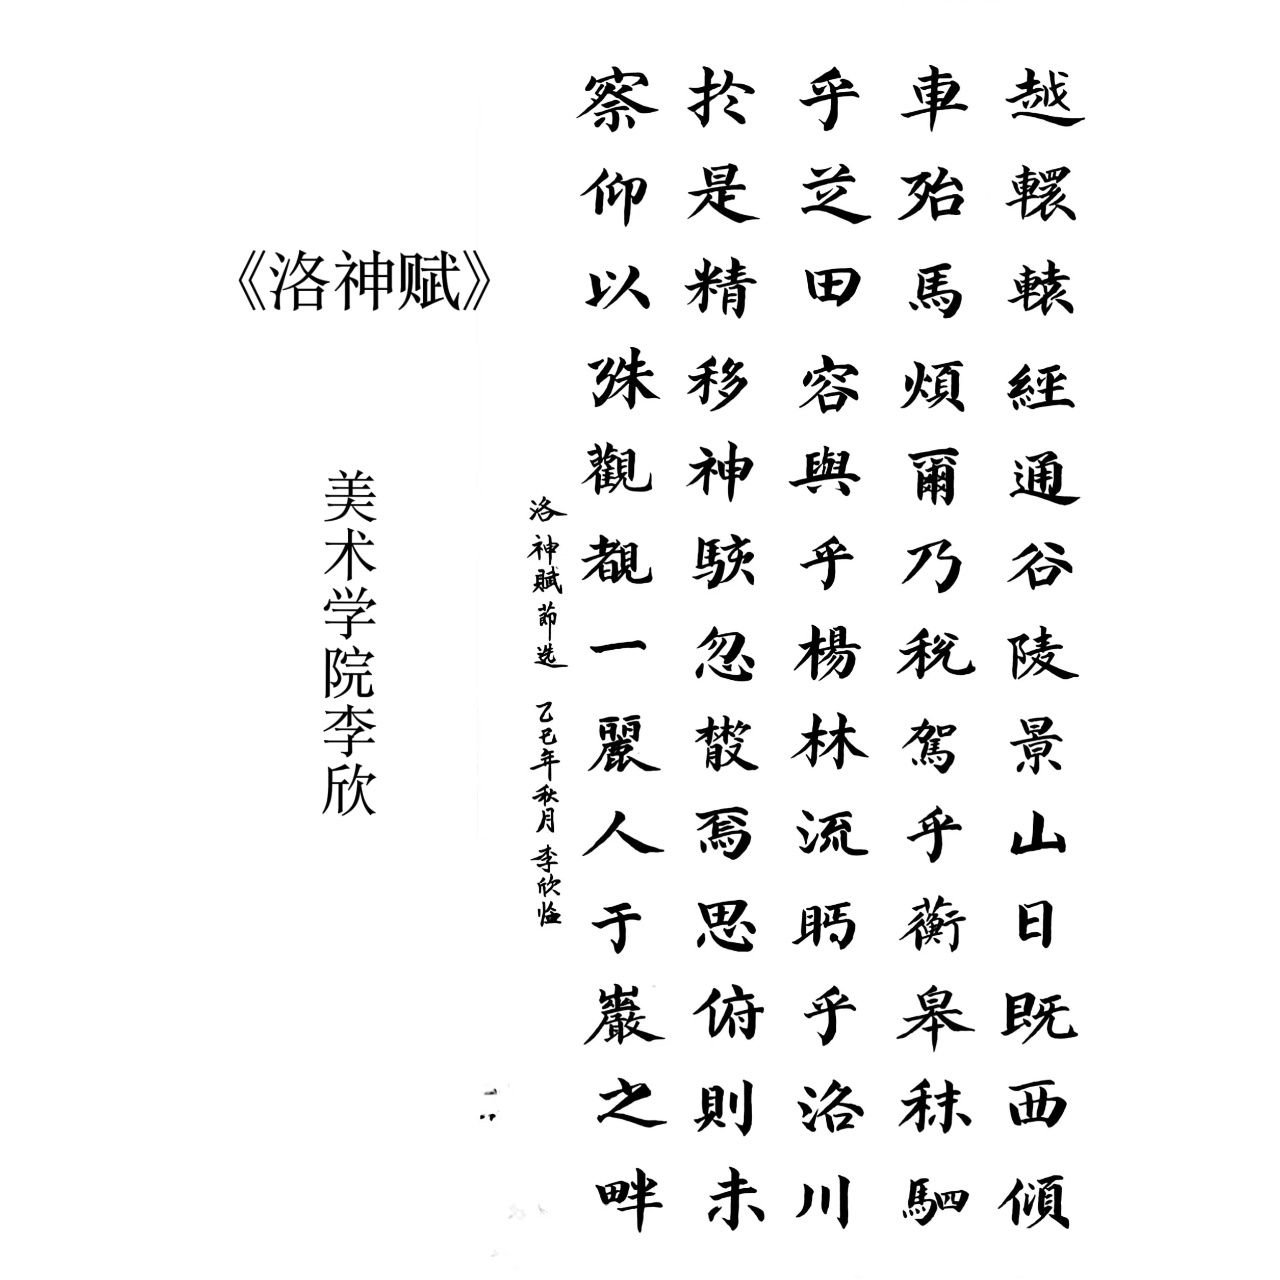 越轘轅經通谷陵景山日既西傾
車殆馬煩爾乃稅駕乎蘅皋秣駟
乎芝田容與乎楊林流眄乎洛川
於是精移神駭忽㪚焉思俯則未
察仰以殊觀覩一麗人于巖之畔
洛神賦莭选 乙巳年秋月 李欣临
《洛神赋》
美术学院李欣